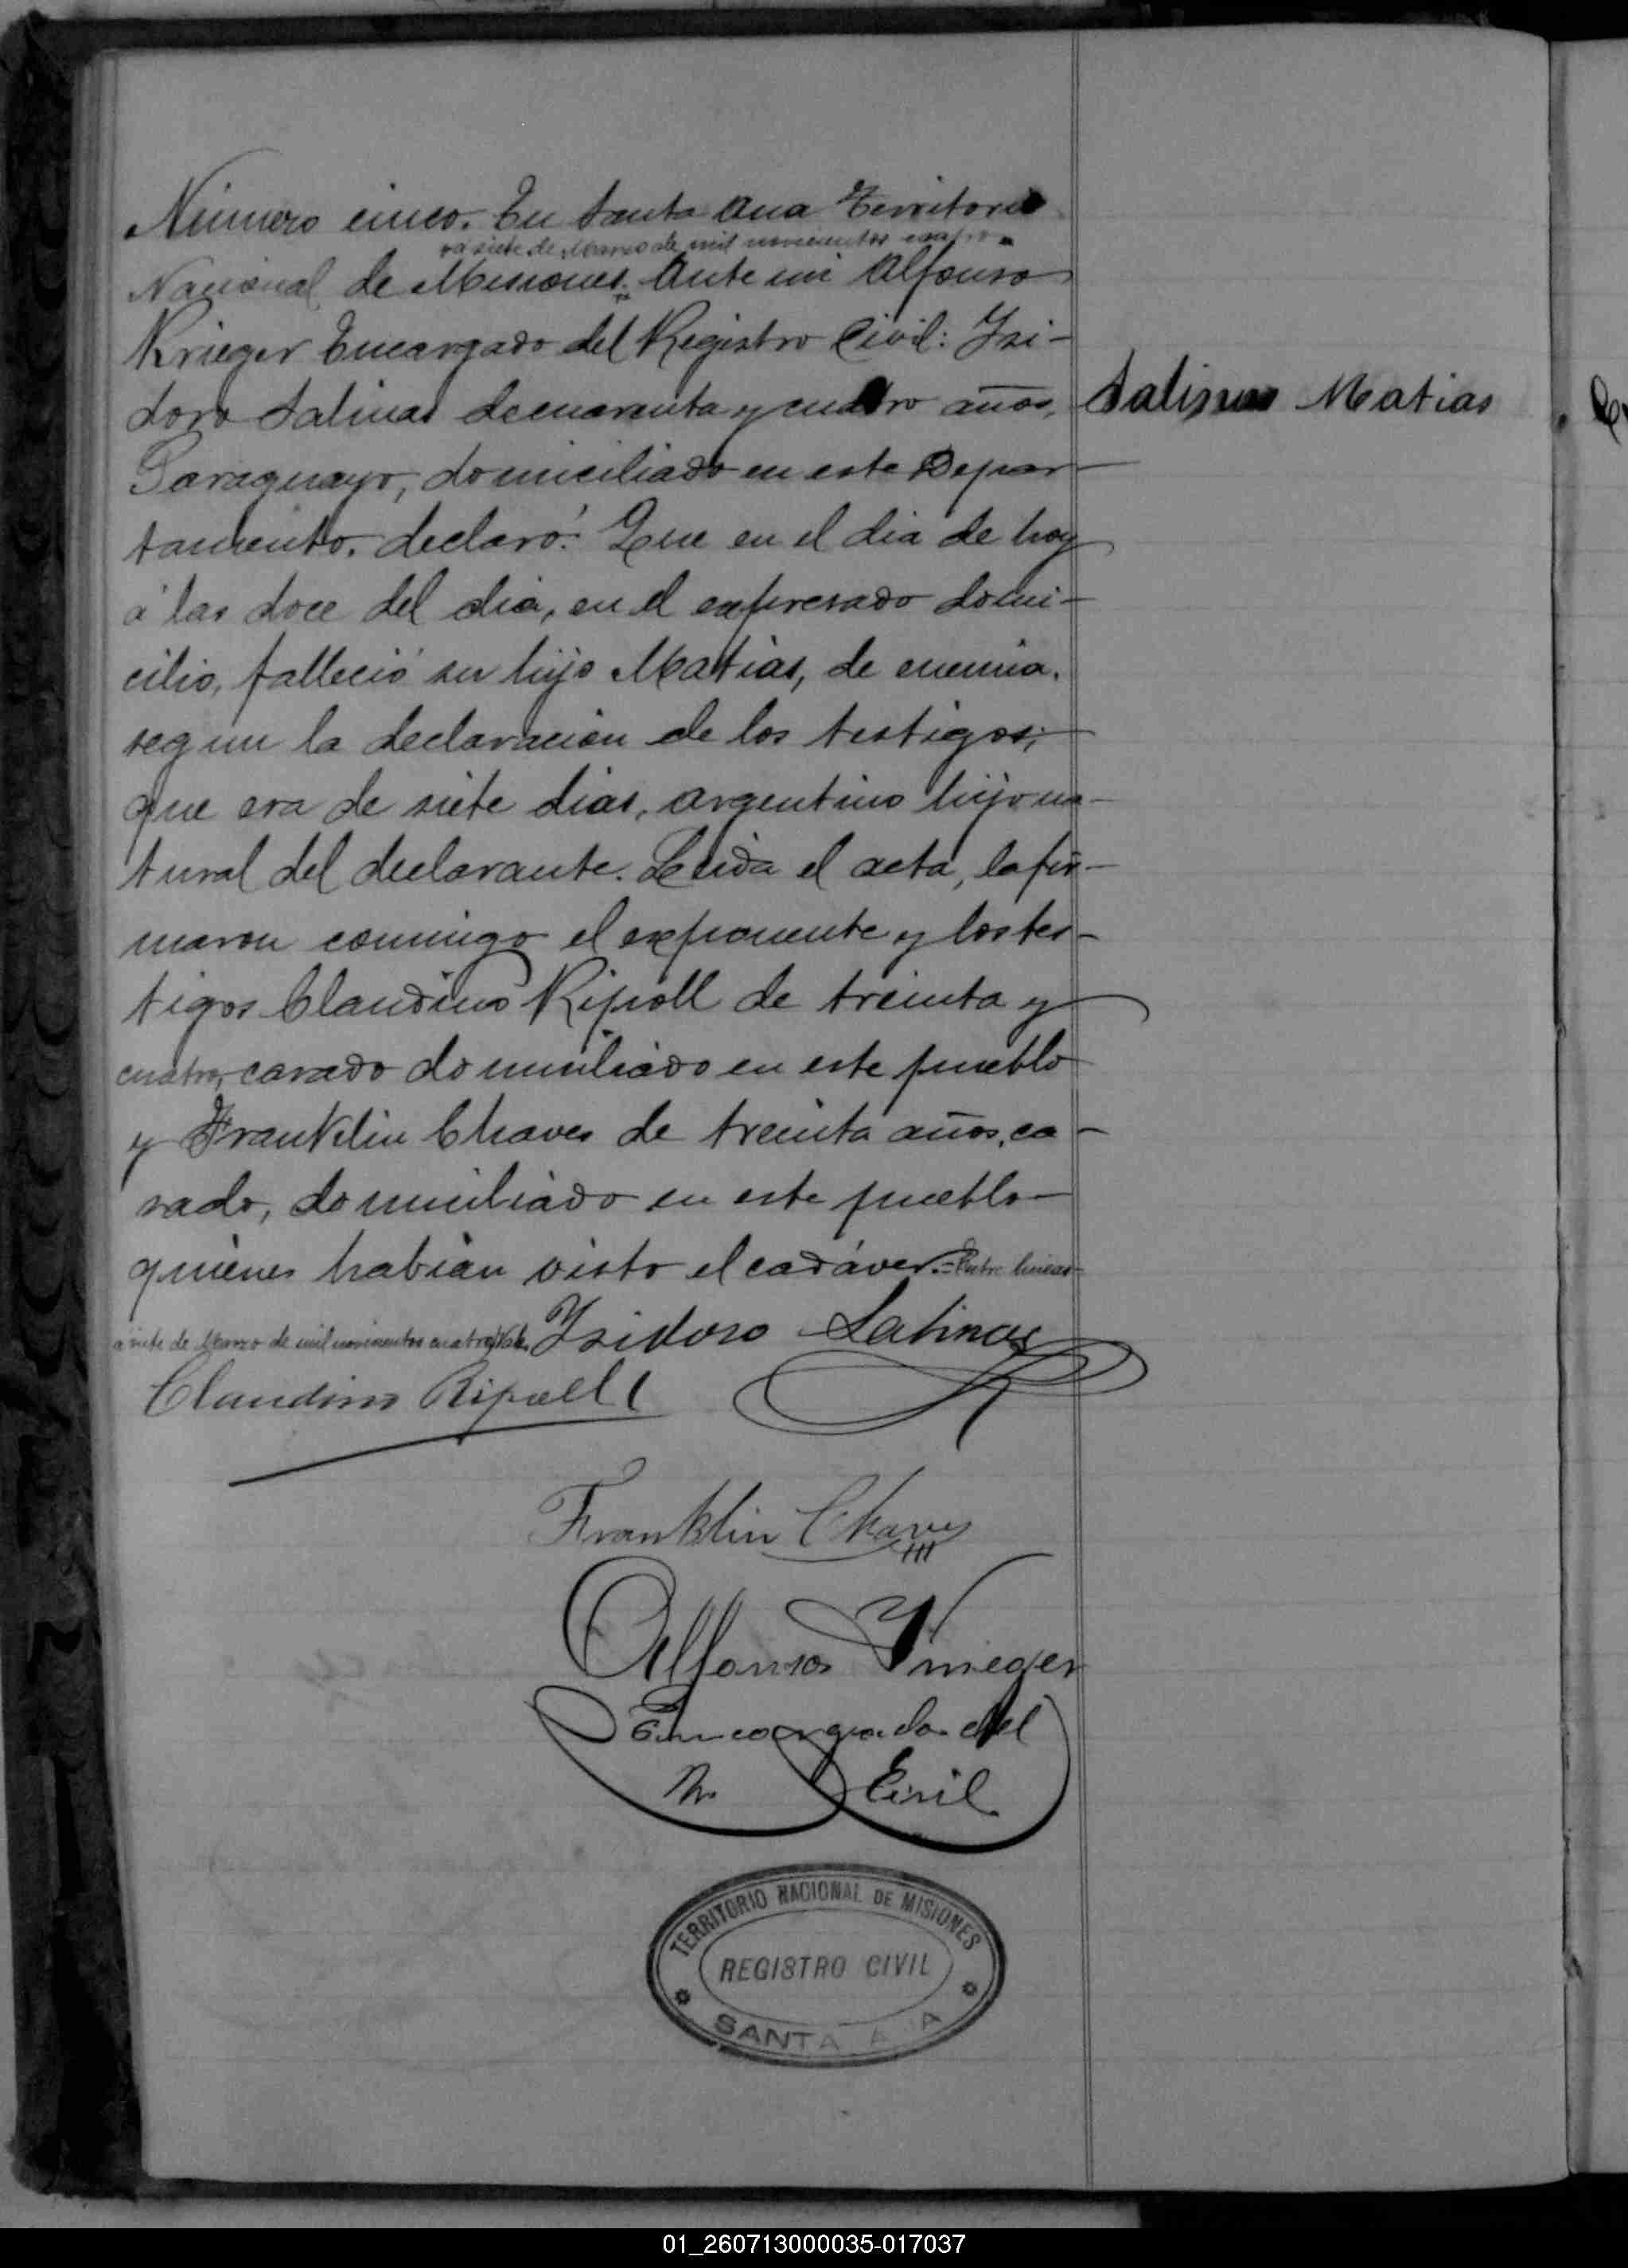 Número cinco. En Santa Ana Territorio
á siete de Marzo de mil novecientos cuatro
Nacional de Misiones. Ante mi Alfonso
Krieger Encargado del Registro Civil: Isi-
doro Salinas de cuarenta y cuatro años,
Paraguayo, domiciliado en este Depar-
tamento. declaró: Que en el dia de hoy
á las doce del dia, en el expresado domi-
cilio, falleció su hijo Matias, de enemia.
segun la declaracion de los testigos;
que era de siete dias, argentino hijo na-
tural del declarante. Leida el acta, la fir-
maron comigo el exponente y los tes-
tigos Claudino Ripoll de treinta y
cuatro, casado domiciliado en este pueblo
y Franklin Chaves de treinta años, ca-
sado, domiciliado en este pueblo
quienes habian visto el cadáver.=Entre lineas
a siete de Marzo de mil novecientos cuatro Vale. Isidoro Salinas
Claudino Ripoll
Franklin Chaves
Alfonso Krieger
Encargado del
R. Civil
Salinas Matias
TERRITORIO NACIONAL DE MISIONES
REGISTRO CIVIL
SANTA A A
01_260713000035-017037